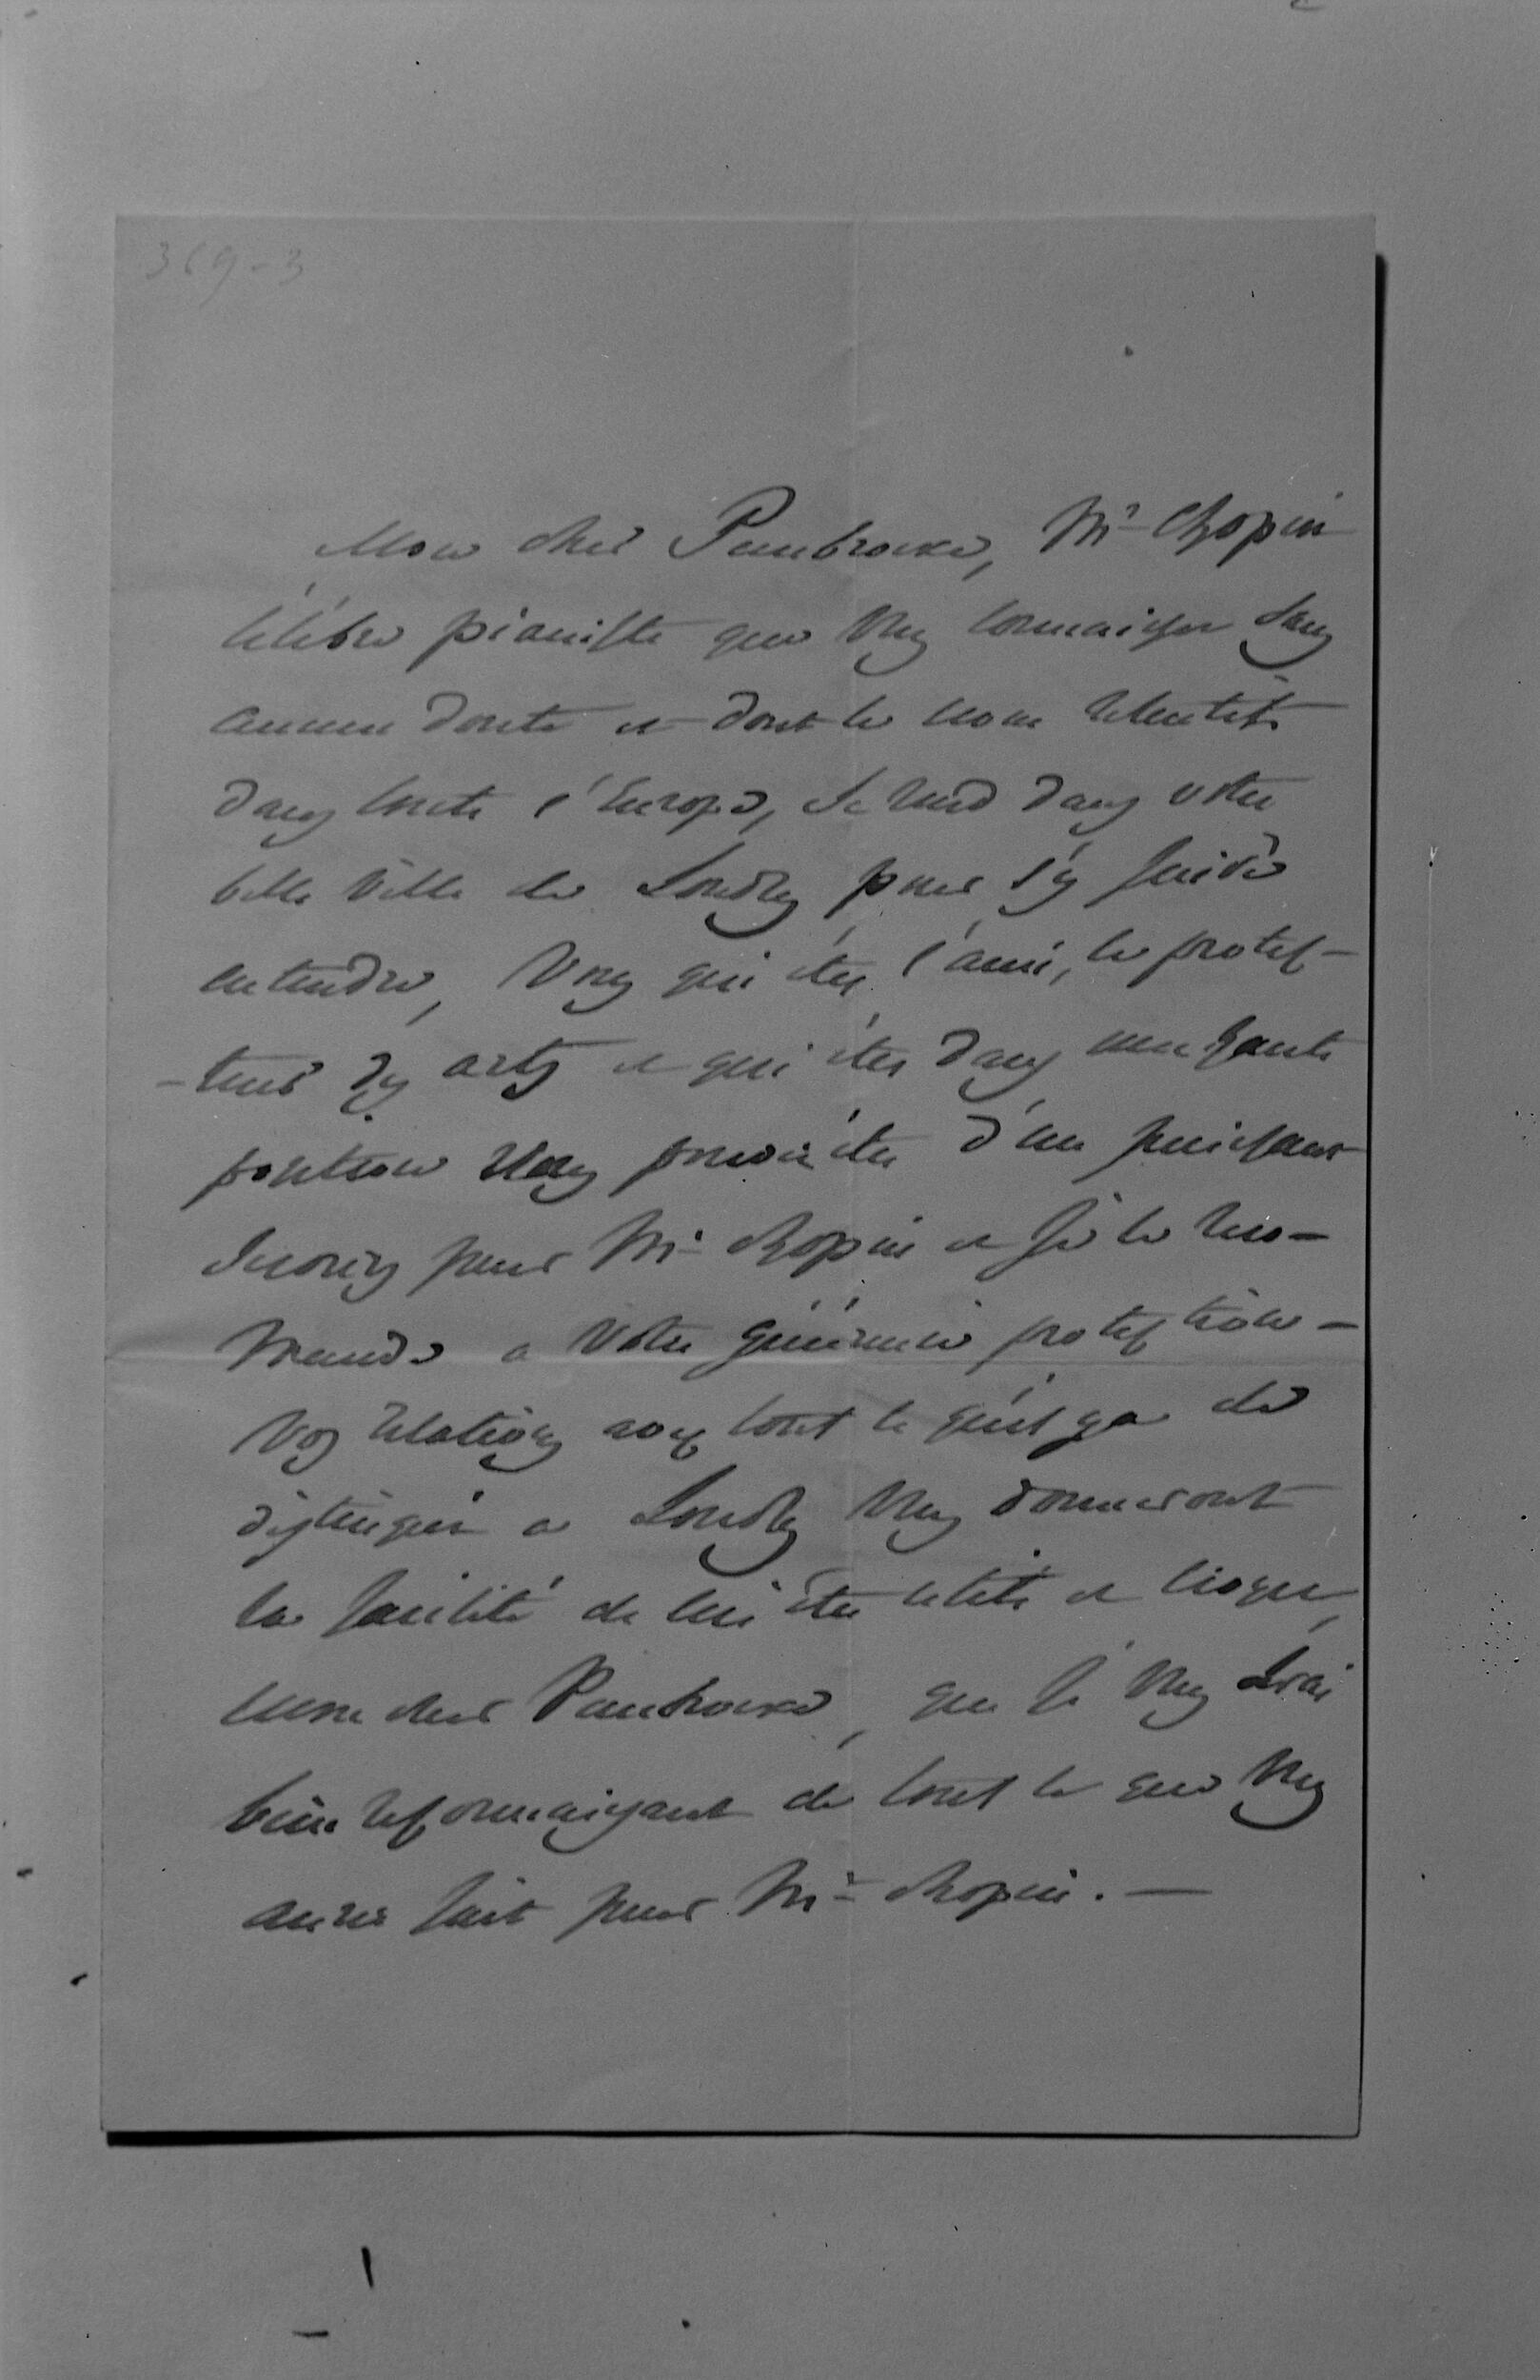 369-3
Mon cher Pembroke, Mr Chopin
célèbre pianiste que Vous connaissez sans
aucun doute et dont le nom retentit
dans toute l'Europe, se rend dans votre
belle Ville de Londres pour s'y faire
entendre, Vous qui êtes l'ami, le protec-
-teur des arts et qui êtes dans une haute
position Vous pouvez être d'un puissant
secours pour Mr Chopin et je le reco-
mande a Votre généreuse protection -
Vos relations avec tout ce qu'il y a de
distingué a Londres Vous donneront
la facilité de lui être utile et croyez,
mon cher Pembroke, que je Vous serai
bien reconnaissant de tout ce que Vous
aurez fait pour Mr Chopin. —